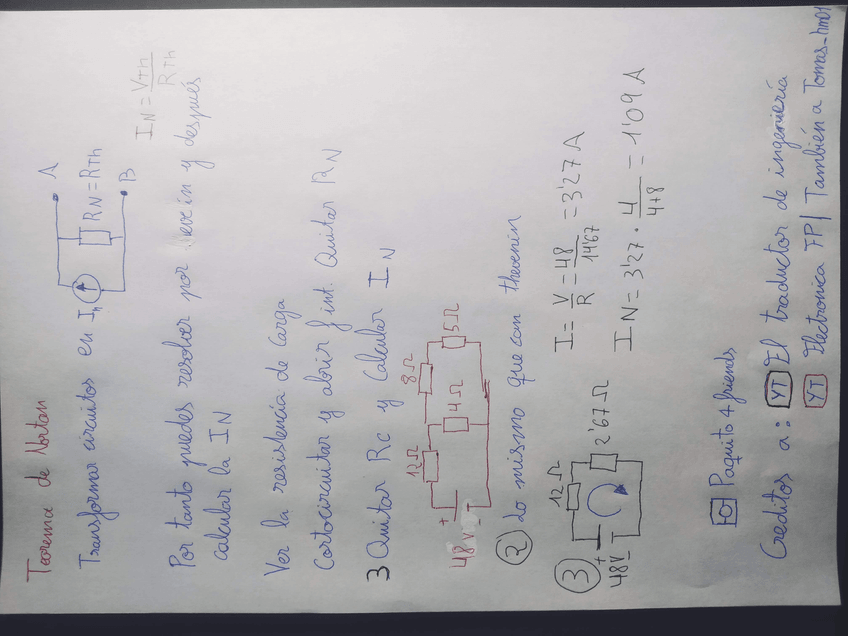 Teorema de Norton
Transformar circuitos en In
A
RN=RTh
B
IN = VTh / RTh
Por tanto puedes resolver por y después
calcular la IN
Ver la resistencia de Carga
Cortocircuitar y abrir f int. Quitar RN
3 Quitar Rc y Calcular IN
12Ω 8Ω
4Ω 5Ω
+
48V -
2 Lo mismo que con thevenin
3
12Ω
+
48V -
2'67Ω
I = V/R = 48/14'67 = 3'27 A
IN = 3'27 · 4/4+8 = 1'09 A
Paquito 4 friends
Creditos a: YT El traductor de ingeniería
YT Electronica FP | También a Tomas-hm01